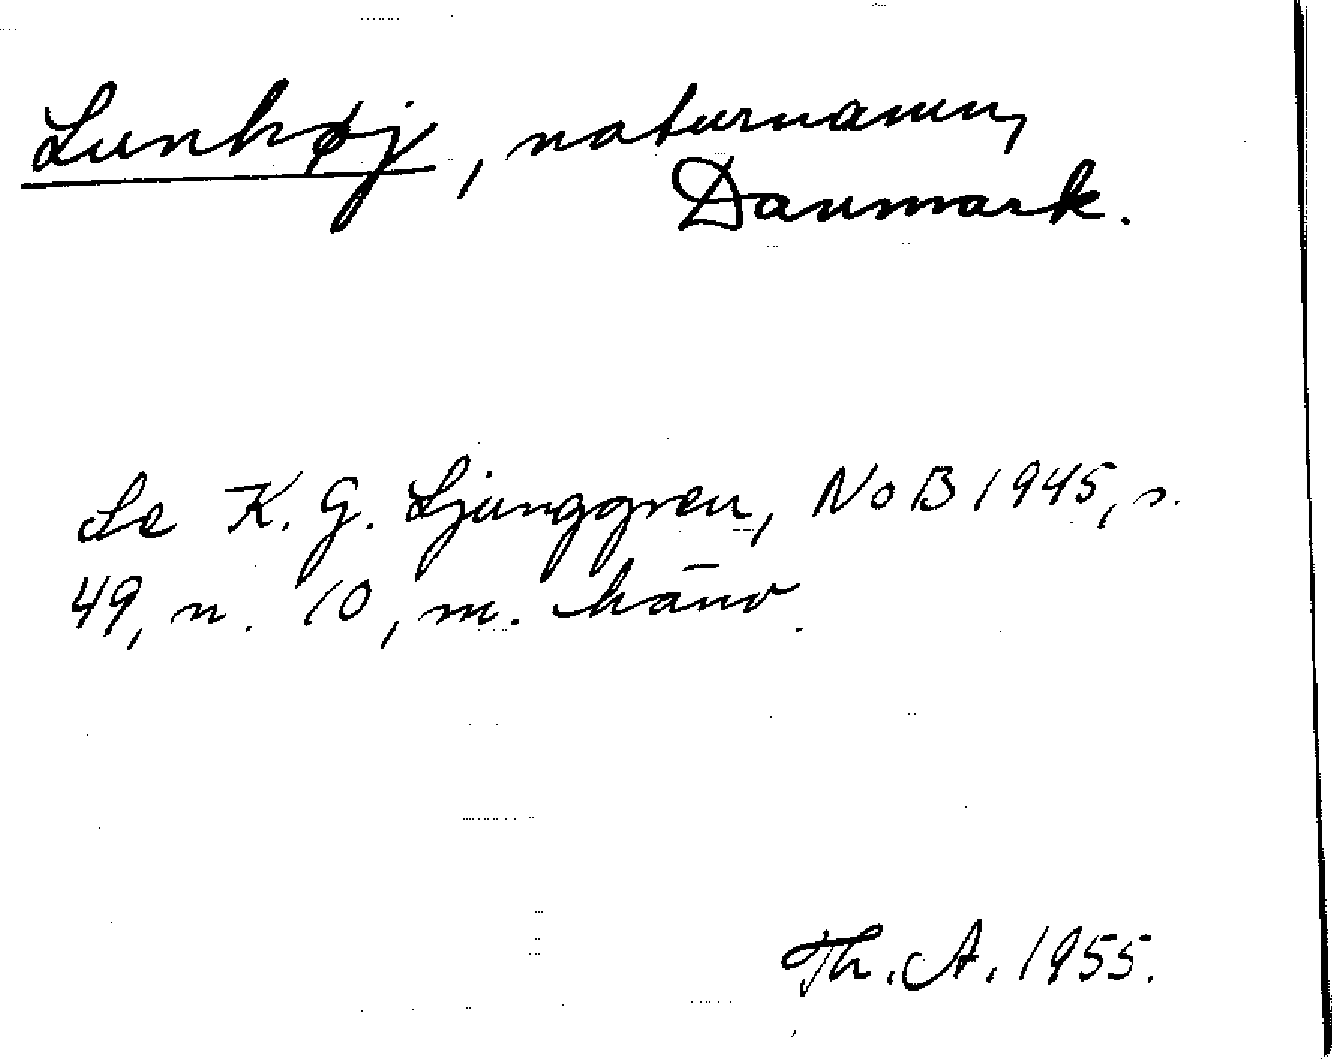 Lunhøj, naturnamn,
Danmark.
Se K. G. Ljunggren, NoB 1945, s.
49, n. 10, m. hänv.
Th. A. 1955.